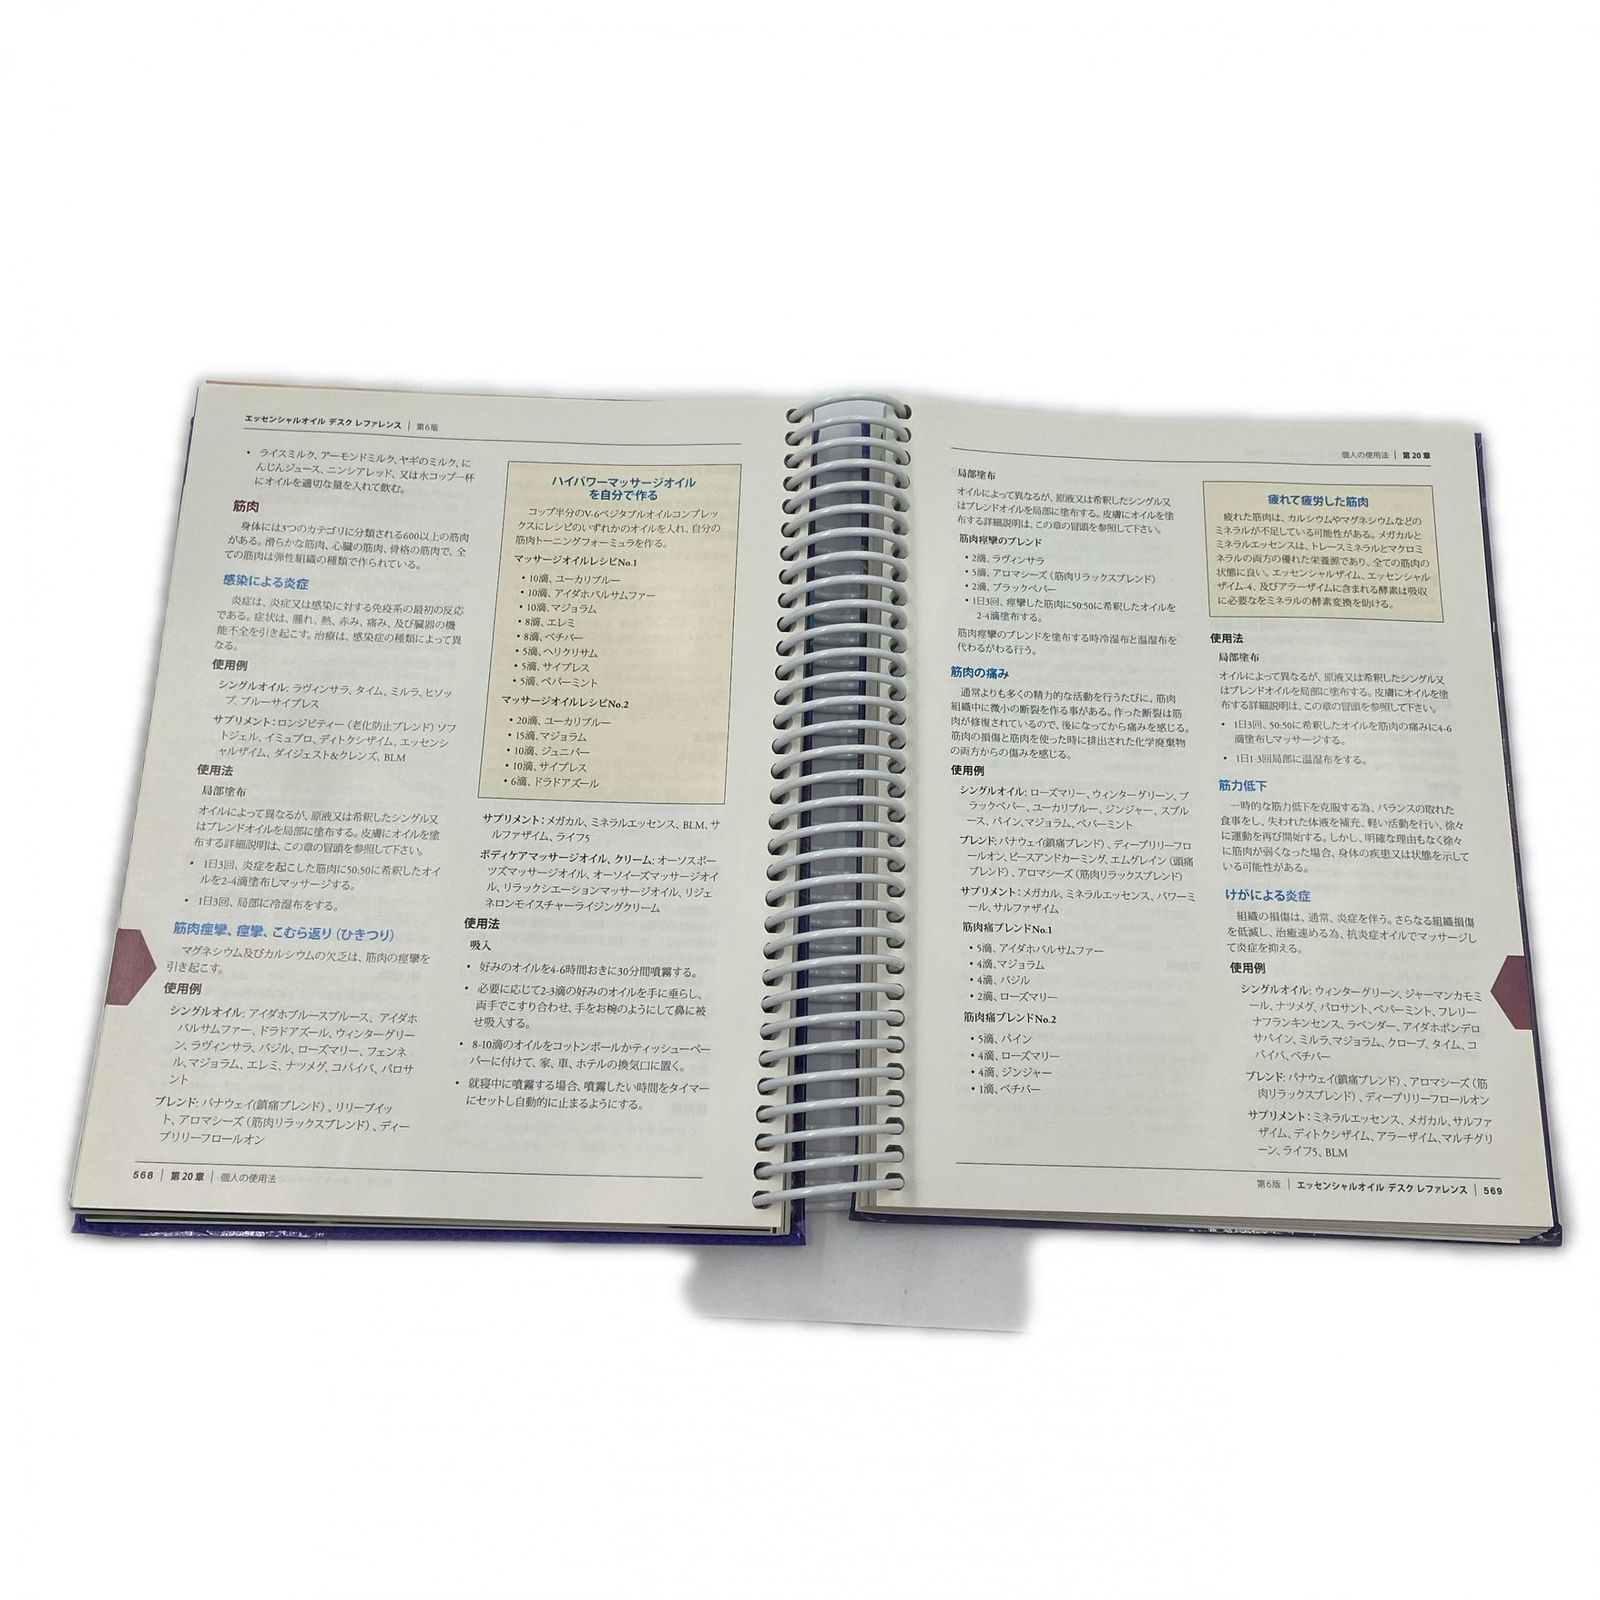 エッセンシャルオイル デスク レファレンス | 第6版
• ライスミルク、アーモンドミルク、ヤギのミルク、に
んじんジュース、ニンシアレッド、又は水コップ一杯
にオイルを適切な量を入れて飲む。
筋肉
身体には3つのカテゴリに分類される600以上の筋肉
がある。滑らかな筋肉、心臓の筋肉、骨格の筋肉で、全
ての筋肉は弾性組織の種類で作られている。
感染による炎症
炎症は、炎症又は感染に対する免疫系の最初の反応
である。症状は、腫れ、熱、赤み、痛み、及び臓器の機
能不全を引き起こす。治療は、感染症の種類によって異
なる。
使用例
シングルオイル: ラヴィンサラ、タイム、ミルラ、ヒソッ
プ、ブルーサイプレス
サプリメント: ロンジビティー (老化防止ブレンド) ソフ
トジェル、イミュプロ、ディトクシザイム、エッセンシ
ャルザイム、ダイジェスト&クレンズ、BLM
使用法
局部塗布
オイルによって異なるが、原液又は希釈したシングル又
はブレンドオイルを局部に塗布する。皮膚にオイルを塗
布する詳細説明は、この章の冒頭を参照して下さい。
• 1日3回、炎症を起こした筋肉に50:50に希釈したオイ
ルを2-4滴塗布しマッサージする。
• 1日3回、局部に冷湿布をする。
筋肉痙攣、痙攣、こむら返り (ひきつり)
マグネシウム及びカルシウムの欠乏は、筋肉の痙攣を
引き起こす。
使用例
シングルオイル: アイダホブルースプルース、アイダホ
バルサムファー、ドラドアズール、ウィンターグリー
ン、ラヴィンサラ、バジル、ローズマリー、フェンネ
ル、マジョラム、エレミ、ナツメグ、コパイバ、パロサ
ント
ブレンド: パナウェイ(鎮痛ブレンド)、リリーブイッ
ト、アロマシーズ (筋肉リラックスブレンド)、ディー
プリリーフロールオン
568 | 第20章 | 個人の使用法
ハイパワーマッサージオイル
を自分で作る
コップ半分のV-6ベジタブルオイルコンプレッ
クスにレシピのいずれかのオイルを入れ、自分の
筋肉トーニングフォーミュラを作る。
マッサージオイルレシピNo.1
• 10滴、ユーカリブルー
• 10滴、アイダホバルサムファー
• 10滴、マジョラム
• 8滴、エレミ
• 8滴、ベチバー
• 5滴、ヘリクリサム
• 5滴、サイプレス
• 5滴、ペパーミント
マッサージオイルレシピNo.2
• 20滴、ユーカリブルー
• 15滴、マジョラム
• 10滴、ジュニパー
• 10滴、サイプレス
• 6滴、ドラドアズール
サプリメント: メガカル、ミネラルエッセンス、BLM、サ
ルファザイム、ライフ5
ボディケアマッサージオイル、クリーム: オーソスポー
ツズマッサージオイル、オーソイーズマッサージオイ
ル、リラックシエーションマッサージオイル、リジェ
ネロンモイスチャーライジングクリーム
使用法
吸入
• 好みのオイルを4-6時間おきに30分間噴霧する。
• 必要に応じて2-3滴の好みのオイルを手に垂らし、
両手でこすり合わせ、手をお椀のようにして鼻に被
せ吸入する。
• 8-10滴のオイルをコットンボールかティッシューペー
パーに付けて、家、車、ホテルの換気口に置く。
• 就寝中に噴霧する場合、噴霧したい時間をタイマー
にセットし自動的に止まるようにする。
個人の使用法 | 第20章
局部塗布
オイルによって異なるが、原液又は希釈したシングル又
はブレンドオイルを局部に塗布する。皮膚にオイルを塗
布する詳細説明は、この章の冒頭を参照して下さい。
筋肉痙攣のブレンド
• 2滴、ラヴィンサラ
• 5滴、アロマシーズ (筋肉リラックスブレンド)
• 2滴、ブラックペパー
• 1日3回、痙攣した筋肉に50:50に希釈したオイルを
2-4滴塗布する。
筋肉痙攣のブレンドを塗布する時冷湿布と温湿布を
代わるがわる行う。
筋肉の痛み
通常よりも多くの精力的な活動を行うたびに、筋肉
組織中に微小の断裂を作る事がある。作った断裂は筋
肉が修復されているので、後になってから痛みを感じる。
筋肉の損傷と筋肉を使った時に排出された化学廃棄物
の両方からの傷みを感じる。
使用例
シングルオイル: ローズマリー、ウィンターグリーン、ブ
ラックペパー、ユーカリブルー、ジンジャー、スプル
ース、パイン、マジョラム、ペパーミント
ブレンド: パナウェイ(鎮痛ブレンド)、ディープリリーフロ
ールオン、ピースアンドカーミング、エムグレイン (頭痛
ブレンド)、アロマシーズ (筋肉リラックスブレンド)
サプリメント: メガカル、ミネラルエッセンス、パワーミ
ール、サルファザイム
筋肉痛ブレンドNo.1
• 5滴、アイダホバルサムファー
• 4滴、マジョラム
• 4滴、バジル
• 2滴、ローズマリー
筋肉痛ブレンドNo.2
• 5滴、パイン
• 4滴、ローズマリー
• 4滴、ジンジャー
• 1滴、ベチバー
疲れて疲労した筋肉
疲れた筋肉は、カルシウムやマグネシウムなどの
ミネラルが不足している可能性がある。メガカルと
ミネラルエッセンスは、トレースミネラルとマクロミ
ネラルの両方の優れた栄養源であり、全ての筋肉の
状態に良い。エッセンシャルザイム、エッセンシャル
ザイム-4、及びアラーザイムに含まれる酵素は吸収
に必要ななミネラルの酵素変換を助ける。
使用法
局部塗布
オイルによって異なるが、原液又は希釈したシングル又
はブレンドオイルを局部に塗布する。皮膚にオイルを塗
布する詳細説明は、この章の冒頭を参照して下さい。
• 1日3回、50:50に希釈したオイルを筋肉の痛みに4-6
滴塗布しマッサージする。
• 1日1-3回局部に温湿布をする。
筋力低下
一時的な筋力低下を克服する為、バランスの取れた
食事をし、失われた体液を補充、軽い活動を行い、徐々
に運動を再び開始する。しかし、明確な理由もなく徐々
に筋肉が弱くなった場合、身体の疾患又は状態を示して
いる可能性がある。
けがによる炎症
組織の損傷は、通常、炎症を伴う。さらなる組織損傷
を低減し、治癒速める為、抗炎症オイルでマッサージし
て炎症を抑える。
使用例
シングルオイル: ウィンターグリーン、ジャーマンカモミ
ール、ナツメグ、パロサント、ペパーミント、フレリー
ナフランキンセンス、ラベンダー、アイダホポンデロ
サパイン、ミルラ、マジョラム、クローブ、タイム、コ
パイバ、ベチバー
ブレンド: パナウェイ(鎮痛ブレンド)、アロマシーズ (筋
肉リラックスブレンド)、ディープリリーフロールオン
サプリメント: ミネラルエッセンス、メガカル、サルファ
ザイム、ディトクシザイム、アラーザイム、マルチグリ
ーン、ライフ5、BLM
第6版 | エッセンシャルオイル デスク レファレンス | 569